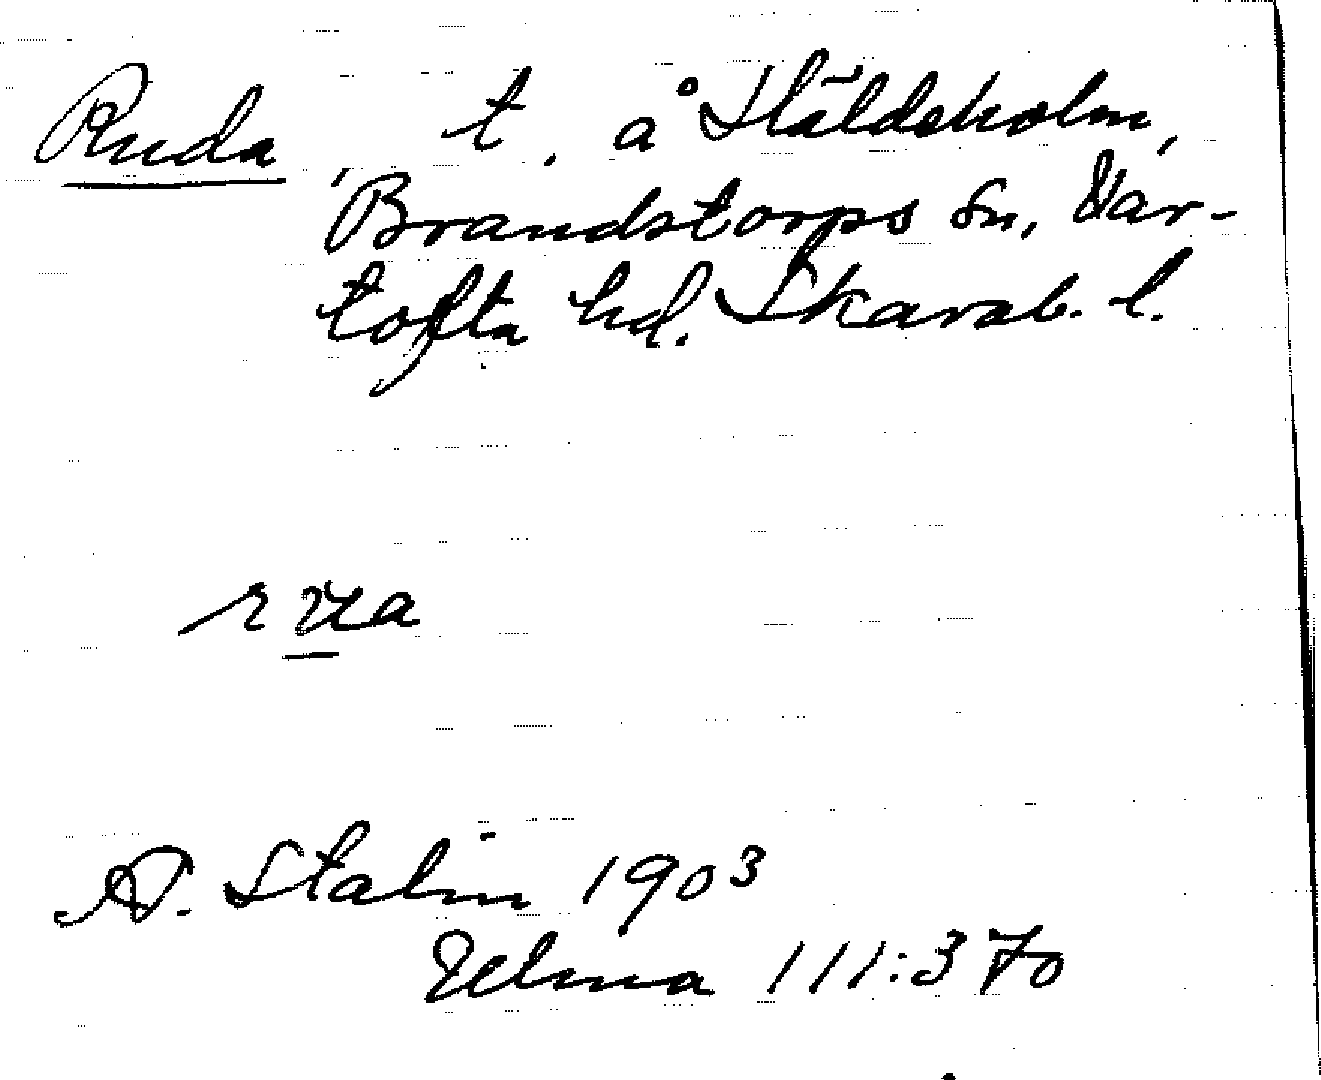 Ruda, t. å Häldeholm,
Brandstorps sn, Var-
tofta hd. Skarab. l.
rua
A. Stalin 1903
Ulma 111:370